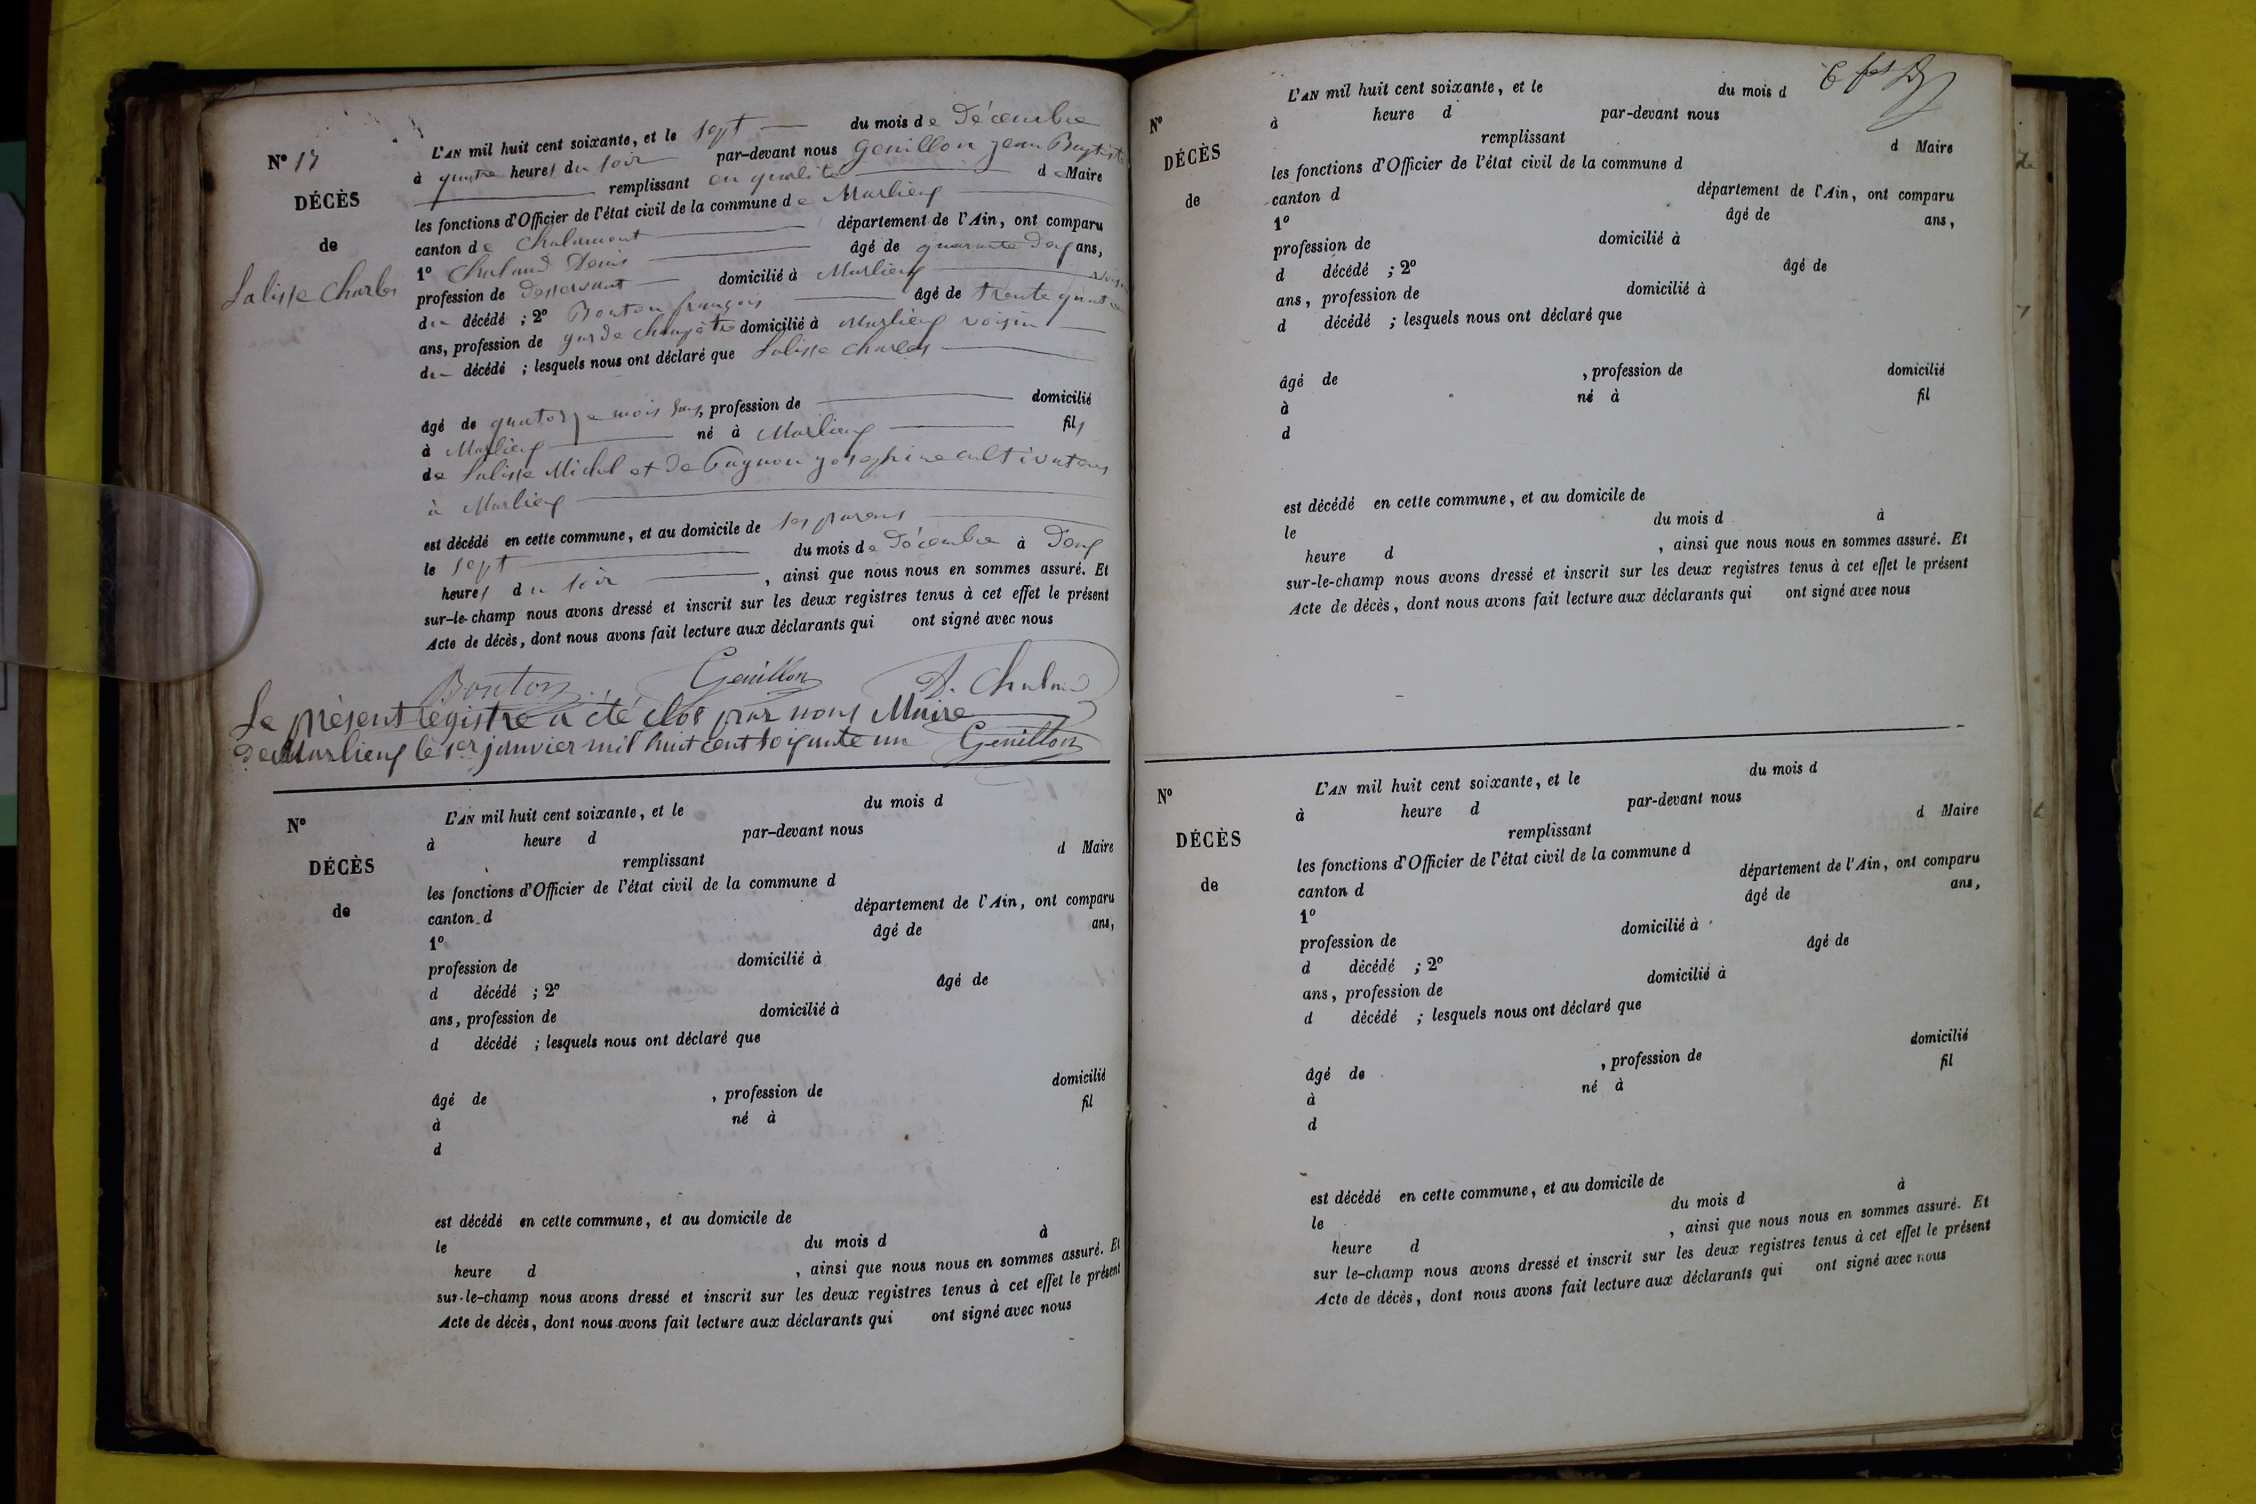 N° 17
DÉCÈS
de
Lalisse Charles
L'AN mil huit cent soixante, et le sept du mois de Décembre
à quatre heures du soir par-devant nous Genillon Jean Baptiste
remplissant en qualité de Maire
les fonctions d'Officier de l'état civil de la commune de Marlieux
canton de Chalamont département de l'Ain, ont comparu
1° Chaland Denis âgé de quarante deux ans,
profession de desservant domicilié à Marlieux voisin
du décédé ; 2° Bouton françois âgé de trente quatre
ans, profession de garde champêtre domicilié à Marlieux voisin
du décédé ; lesquels nous ont déclaré que Lalisse Charles
âgé de quatorze mois , profession de domicilié
à Marlieux né à Marlieux fils
de Lalisse Michel et de Josephine cultivateurs
à Marlieux
est décédé en cette commune, et au domicile de ses parens
le sept du mois de Décembre à Deux
heures du soir , ainsi que nous nous en sommes assuré. Et
sur-le-champ nous avons dressé et inscrit sur les deux registres tenus à cet effet le présent
Acte de décès, dont nous avons fait lecture aux déclarants qui ont signé avec nous
Bouton Genillon D. Chaland
Le présent registre a été clos par nous Maire
de Marlieux le 1er janvier mil huit cent soixante un Genillon
N°
DÉCÈS
de
L'AN mil huit cent soixante, et le du mois d
à heure d par-devant nous
remplissant d Maire
les fonctions d'Officier de l'état civil de la commune d
canton d département de l'Ain, ont comparu
1° âgé de ans,
profession de domicilié à
d décédé ; 2° âgé de
ans, profession de domicilié à
d décédé ; lesquels nous ont déclaré que
âgé de , profession de domicilié
à né à fil
d
est décédé en cette commune, et au domicile de
le du mois d à
heure d , ainsi que nous nous en sommes assuré. Et
sur-le-champ nous avons dressé et inscrit sur les deux registres tenus à cet effet le présent
Acte de décès, dont nous avons fait lecture aux déclarants qui ont signé avec nous
N°
DÉCÈS
de
L'AN mil huit cent soixante, et le du mois d
à heure d par-devant nous
remplissant d Maire
les fonctions d'Officier de l'état civil de la commune d
canton d département de l'Ain, ont comparu
1° âgé de ans,
profession de domicilié à
d décédé ; 2° âgé de
ans, profession de domicilié à
d décédé ; lesquels nous ont déclaré que
âgé de , profession de domicilié
à né à fil
d
est décédé en cette commune, et au domicile de
le du mois d à
heure d , ainsi que nous nous en sommes assuré. Et
sur-le-champ nous avons dressé et inscrit sur les deux registres tenus à cet effet le présent
Acte de décès, dont nous avons fait lecture aux déclarants qui ont signé avec nous
N°
DÉCÈS
de
L'AN mil huit cent soixante, et le du mois d
à heure d par-devant nous
remplissant d Maire
les fonctions d'Officier de l'état civil de la commune d
canton d département de l'Ain, ont comparu
1° âgé de ans,
profession de domicilié à
d décédé ; 2° âgé de
ans, profession de domicilié à
d décédé ; lesquels nous ont déclaré que
âgé de , profession de domicilié
à né à fil
d
est décédé en cette commune, et au domicile de
le du mois d à
heure d , ainsi que nous nous en sommes assuré. Et
sur le-champ nous avons dressé et inscrit sur les deux registres tenus à cet effet le présent
Acte de décès, dont nous avons fait lecture aux déclarants qui ont signé avec nous